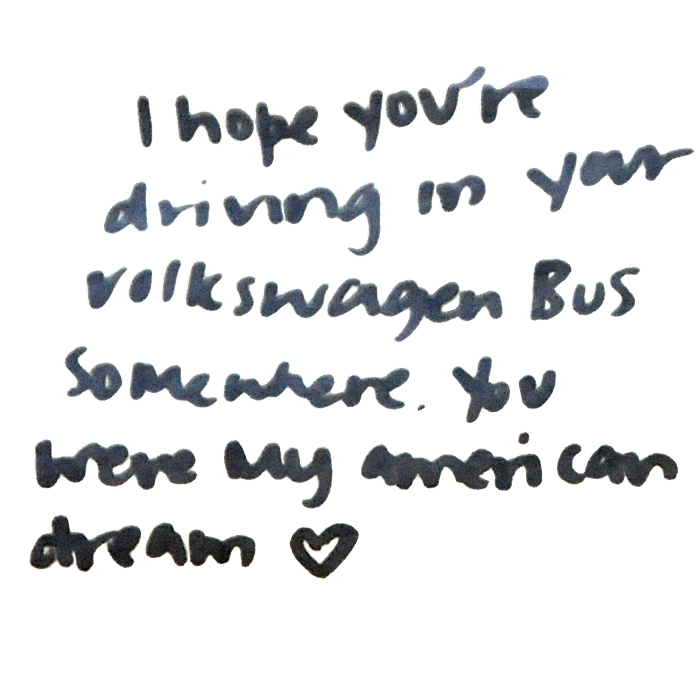 I hope you're
driving in your
volkswagen Bus
somewhere. You
were my american
dream ♡